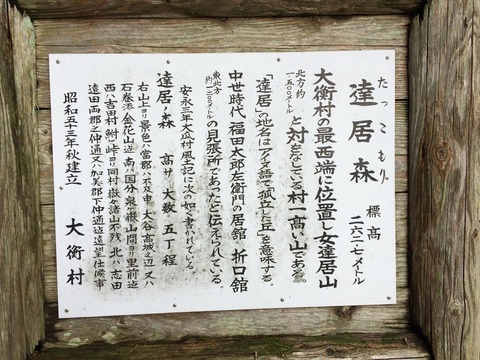 たっこもり
達居森 標高 二六二・七メートル
大衡村の最西端に位置し女達居山
北方約一、五〇〇メートルと対をなしている村一高い山である。
「達居」の地名はアイヌ語で「孤立した丘」を意味する。
中世時代、福田太郎左衛門の居舘 折口舘
東北方約一二〇〇メートルの見張所であったと伝えられている。
安永三年大瓜村風土記に次のやく書かれている。
達居ノ森 高サ 大数 五丁程
右山上ヨリ景色ハ当郡ハ不及申、大谷高城之辺 又ハ
石巻湊金花山迄 南ハ国分 泉ヶ嶽山間ヨリ里前迄
西ハ吉田村 鮒ノ峠ヨリ同村嶽々諸山不残、北ハ志田
遠田両郡之仲通又ハ加美郡下仲通迄遠望仕候事
昭和五十三年秋建立 大衡村